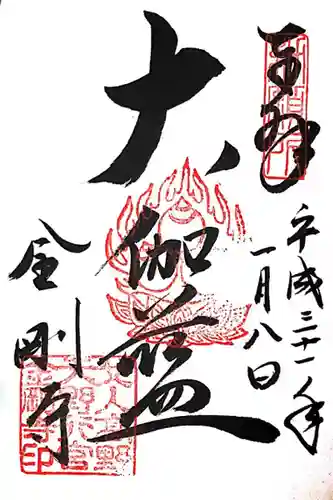 奉拝
平成三十一年
一月八日
大伽藍
金剛寺